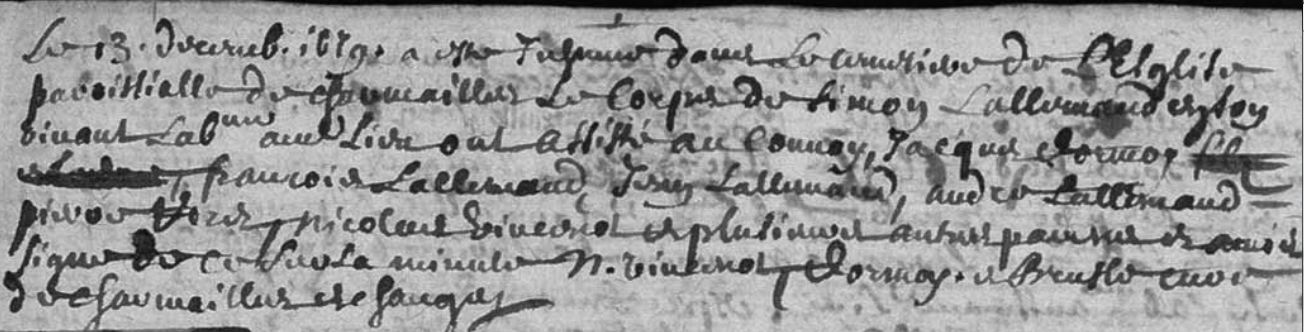 Le 13. decemb. 1679. a este Inhumé dans Le cimetiere de L'Esglise
paroissialle de charmailles Le Corps de simon Lallemand en son
vivant Lab^eur aud Lieu ont Assisté au Convoy, Jacques dormoy
françois Lallemand, Jean Lallemand, andre Lallemand
pierre nicolas vincenot et plusieurs autres parens et amis
signé de ce sur La minute N. vincenot, dormoy. et Brusle curé
de charmailles et